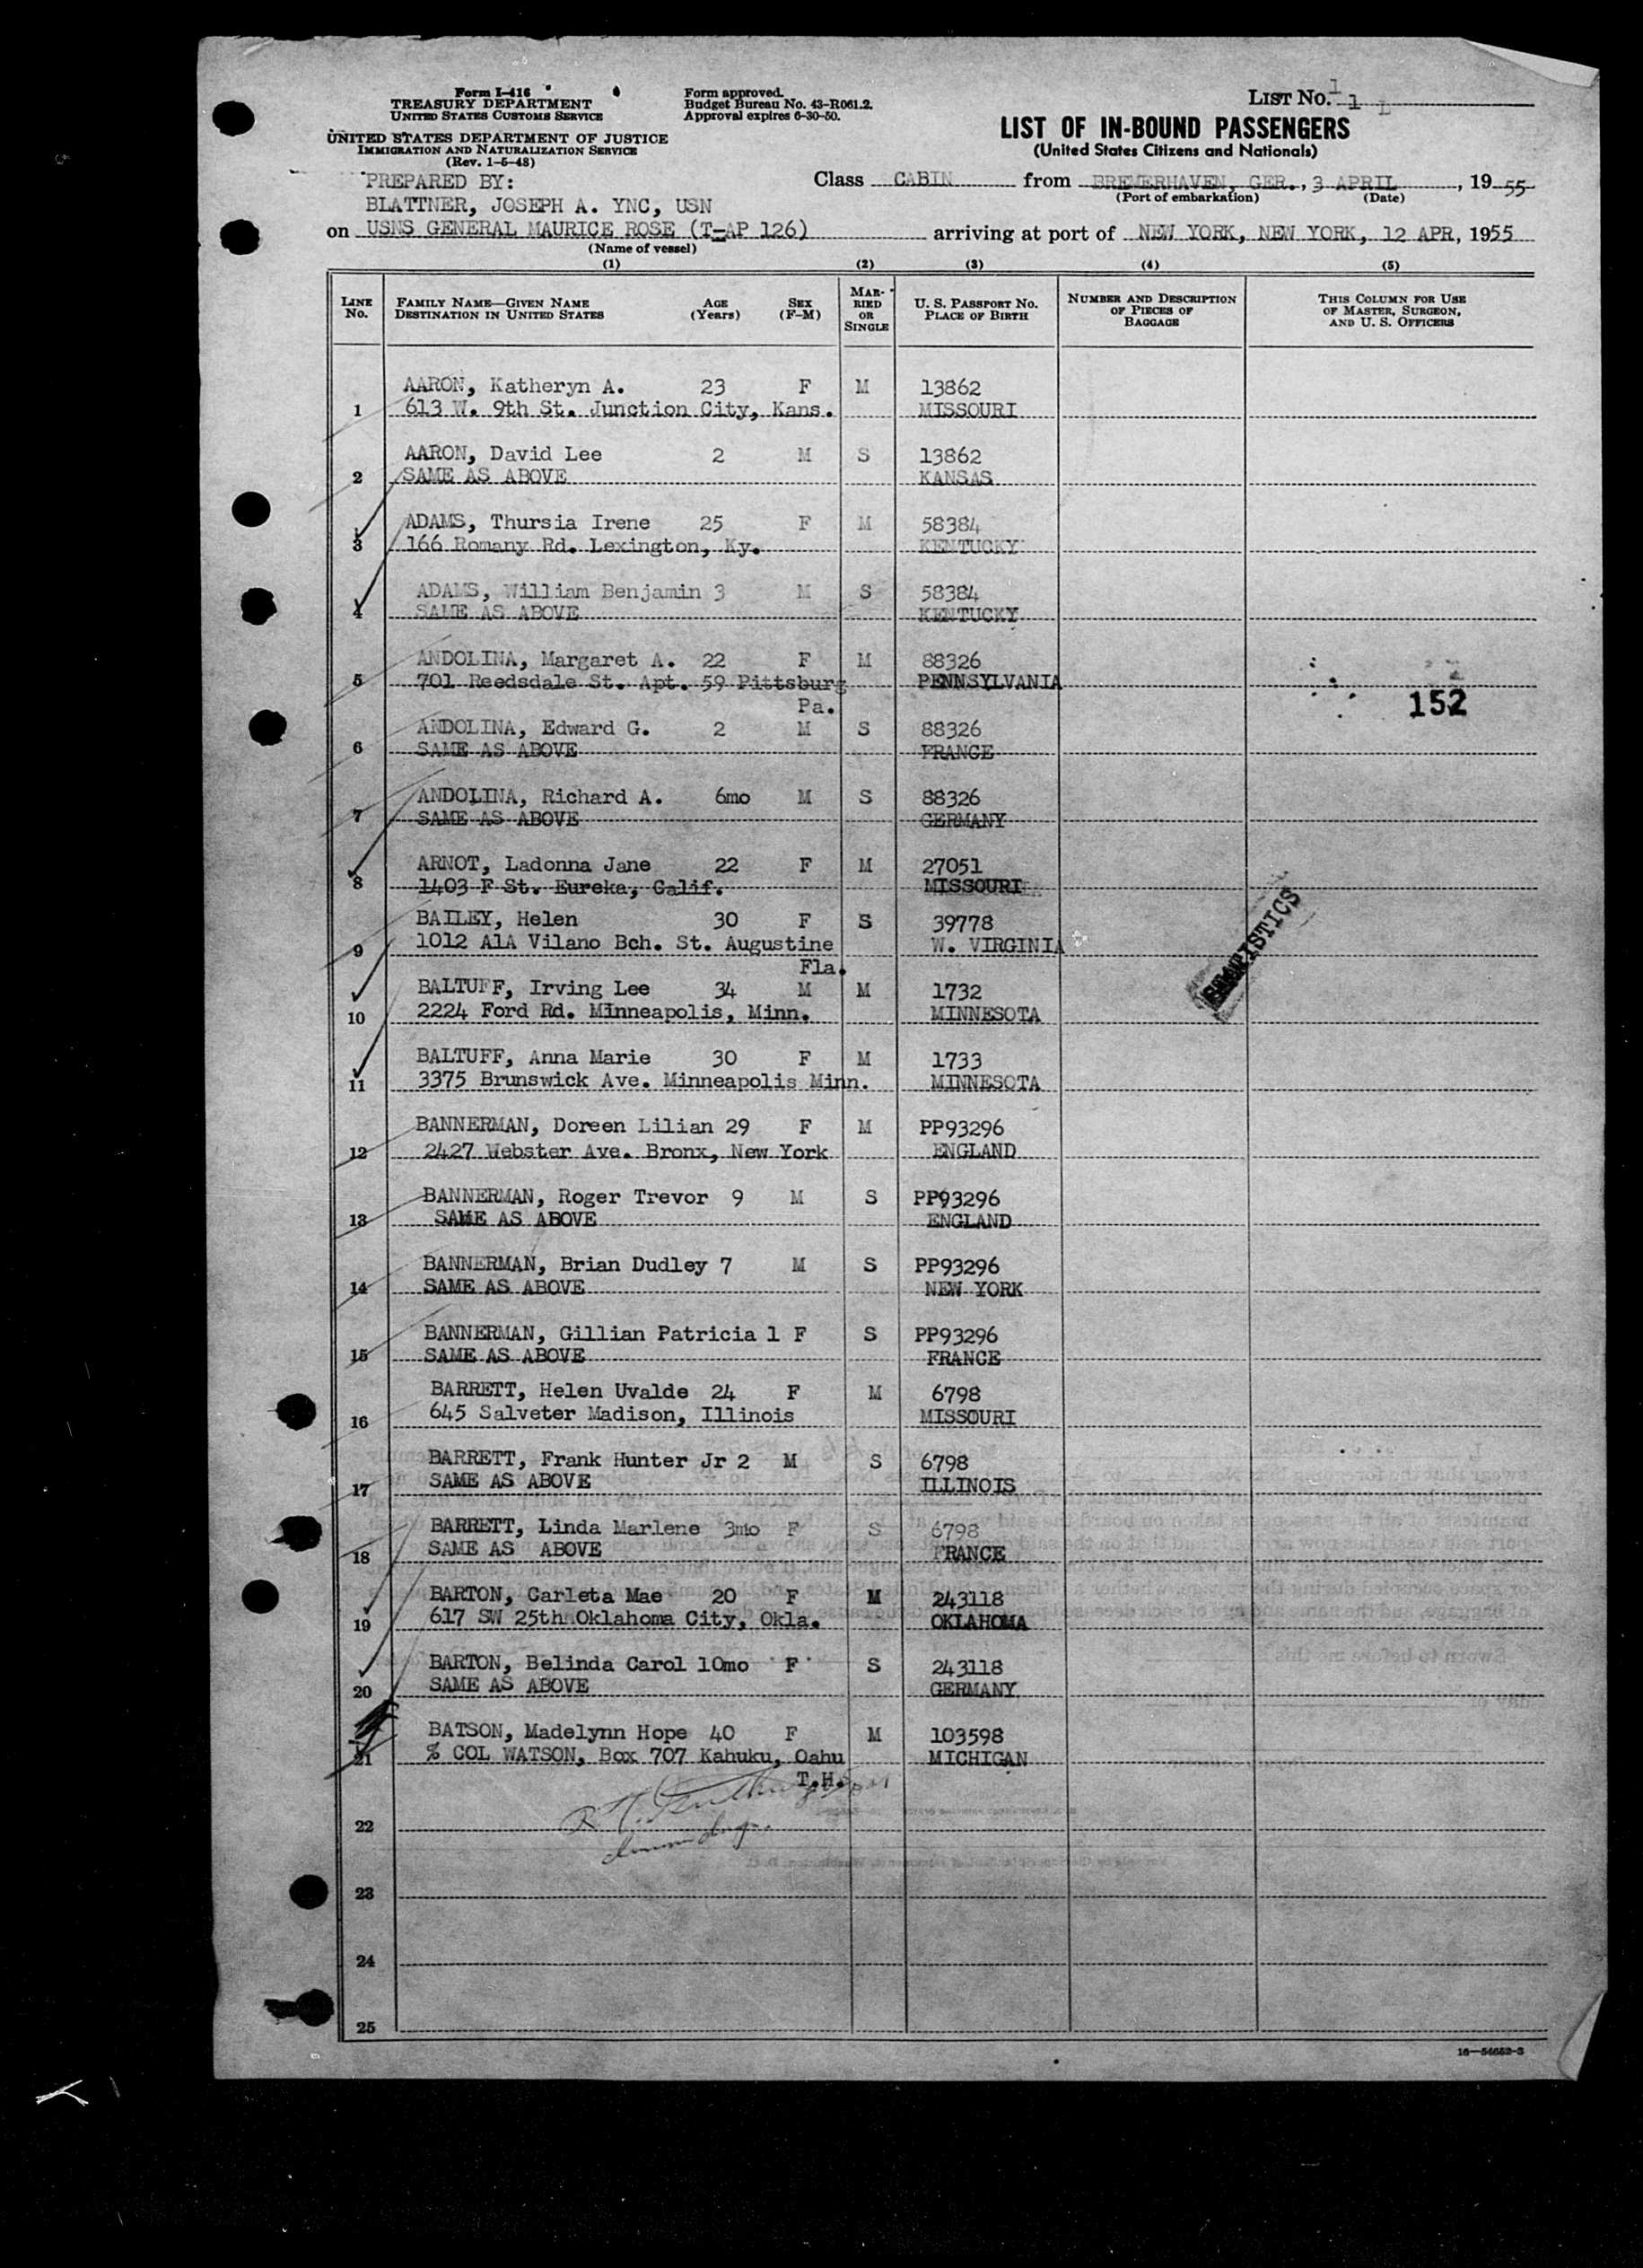 Form I-416
TREASURY DEPARTMENT
UNITED STATES CUSTOMS SERVICE
UNITED STATES DEPARTMENT OF JUSTICE
IMMIGRATION AND NATURALIZATION SERVICE
(Rev. 1-5-48)
Form approved.
Budget Bureau No. 43-R061.2.
Approval expires 6-30-50.
LIST No. 1
LIST OF IN-BOUND PASSENGERS
(United States Citizens and Nationals)
PREPARED BY:
BLATTNER, JOSEPH A. YNC, USN
Class CABIN from BREMERHAVEN, GER., 3 APRIL, 1955
(Port of embarkation) (Date)
on USNS GENERAL MAURICE ROSE (T-AP 126) arriving at port of NEW YORK, NEW YORK, 12 APR, 1955
(Name of vessel)
(1) (2) (3) (4) (5)
LINE No. FAMILY NAME—GIVEN NAME DESTINATION IN UNITED STATES AGE (Years) SEX (F-M) MARRIED OR SINGLE U. S. PASSPORT No. PLACE OF BIRTH NUMBER AND DESCRIPTION OF PIECES OF BAGGAGE THIS COLUMN FOR USE OF MASTER, SURGEON, AND U. S. OFFICERS
AARON, Katheryn A. 23 F M 13862
1 613 W. 9th St. Junction City, Kans. MISSOURI
AARON, David Lee 2 M S 13862
2 SAME AS ABOVE KANSAS
ADAMS, Thursia Irene 25 F M 58384
3 166 Romany Rd. Lexington, Ky. KENTUCKY
ADAMS, William Benjamin 3 M S 58384
4 SAME AS ABOVE KENTUCKY
ANDOLINA, Margaret A. 22 F M 88326
5 701 Reedsdale St. Apt. 59 Pittsburg PENNSYLVANIA
Pa. 152
ANDOLINA, Edward G. 2 M S 88326
6 SAME AS ABOVE FRANCE
ANDOLINA, Richard A. 6mo M S 88326
7 SAME AS ABOVE GERMANY
ARNOT, Ladonna Jane 22 F M 27051
8 1403 F St. Eureka, Calif. MISSOURI
BAILEY, Helen 30 F S 39778
9 1012 A1A Vilano Bch. St. Augustine W. VIRGINIA
Fla.
STATISTICS
BALTUFF, Irving Lee 34 M M 1732
10 2224 Ford Rd. Minneapolis, Minn. MINNESOTA
BALTUFF, Anna Marie 30 F M 1733
11 3375 Brunswick Ave. Minneapolis Minn. MINNESOTA
BANNERMAN, Doreen Lilian 29 F M PP93296
12 2427 Webster Ave. Bronx, New York ENGLAND
BANNERMAN, Roger Trevor 9 M S PP93296
13 SAME AS ABOVE ENGLAND
BANNERMAN, Brian Dudley 7 M S PP93296
14 SAME AS ABOVE NEW YORK
BANNERMAN, Gillian Patricia 1 F S PP93296
15 SAME AS ABOVE FRANCE
BARRETT, Helen Uvalde 24 F M 6798
16 645 Salveter Madison, Illinois MISSOURI
BARRETT, Frank Hunter Jr 2 M S 6798
17 SAME AS ABOVE ILLINOIS
BARRETT, Linda Marlene 3mo F S 6798
18 SAME AS ABOVE FRANCE
BARTON, Carleta Mae 20 F M 243118
19 617 SW 25th Oklahoma City, Okla. OKLAHOMA
BARTON, Belinda Carol 10mo F S 243118
20 SAME AS ABOVE GERMANY
BATSON, Madelynn Hope 40 F M 103598
21 % COL WATSON, Box 707 Kahuku, Oahu MICHIGAN
T.H.
22
23
24
25
16—54652-3